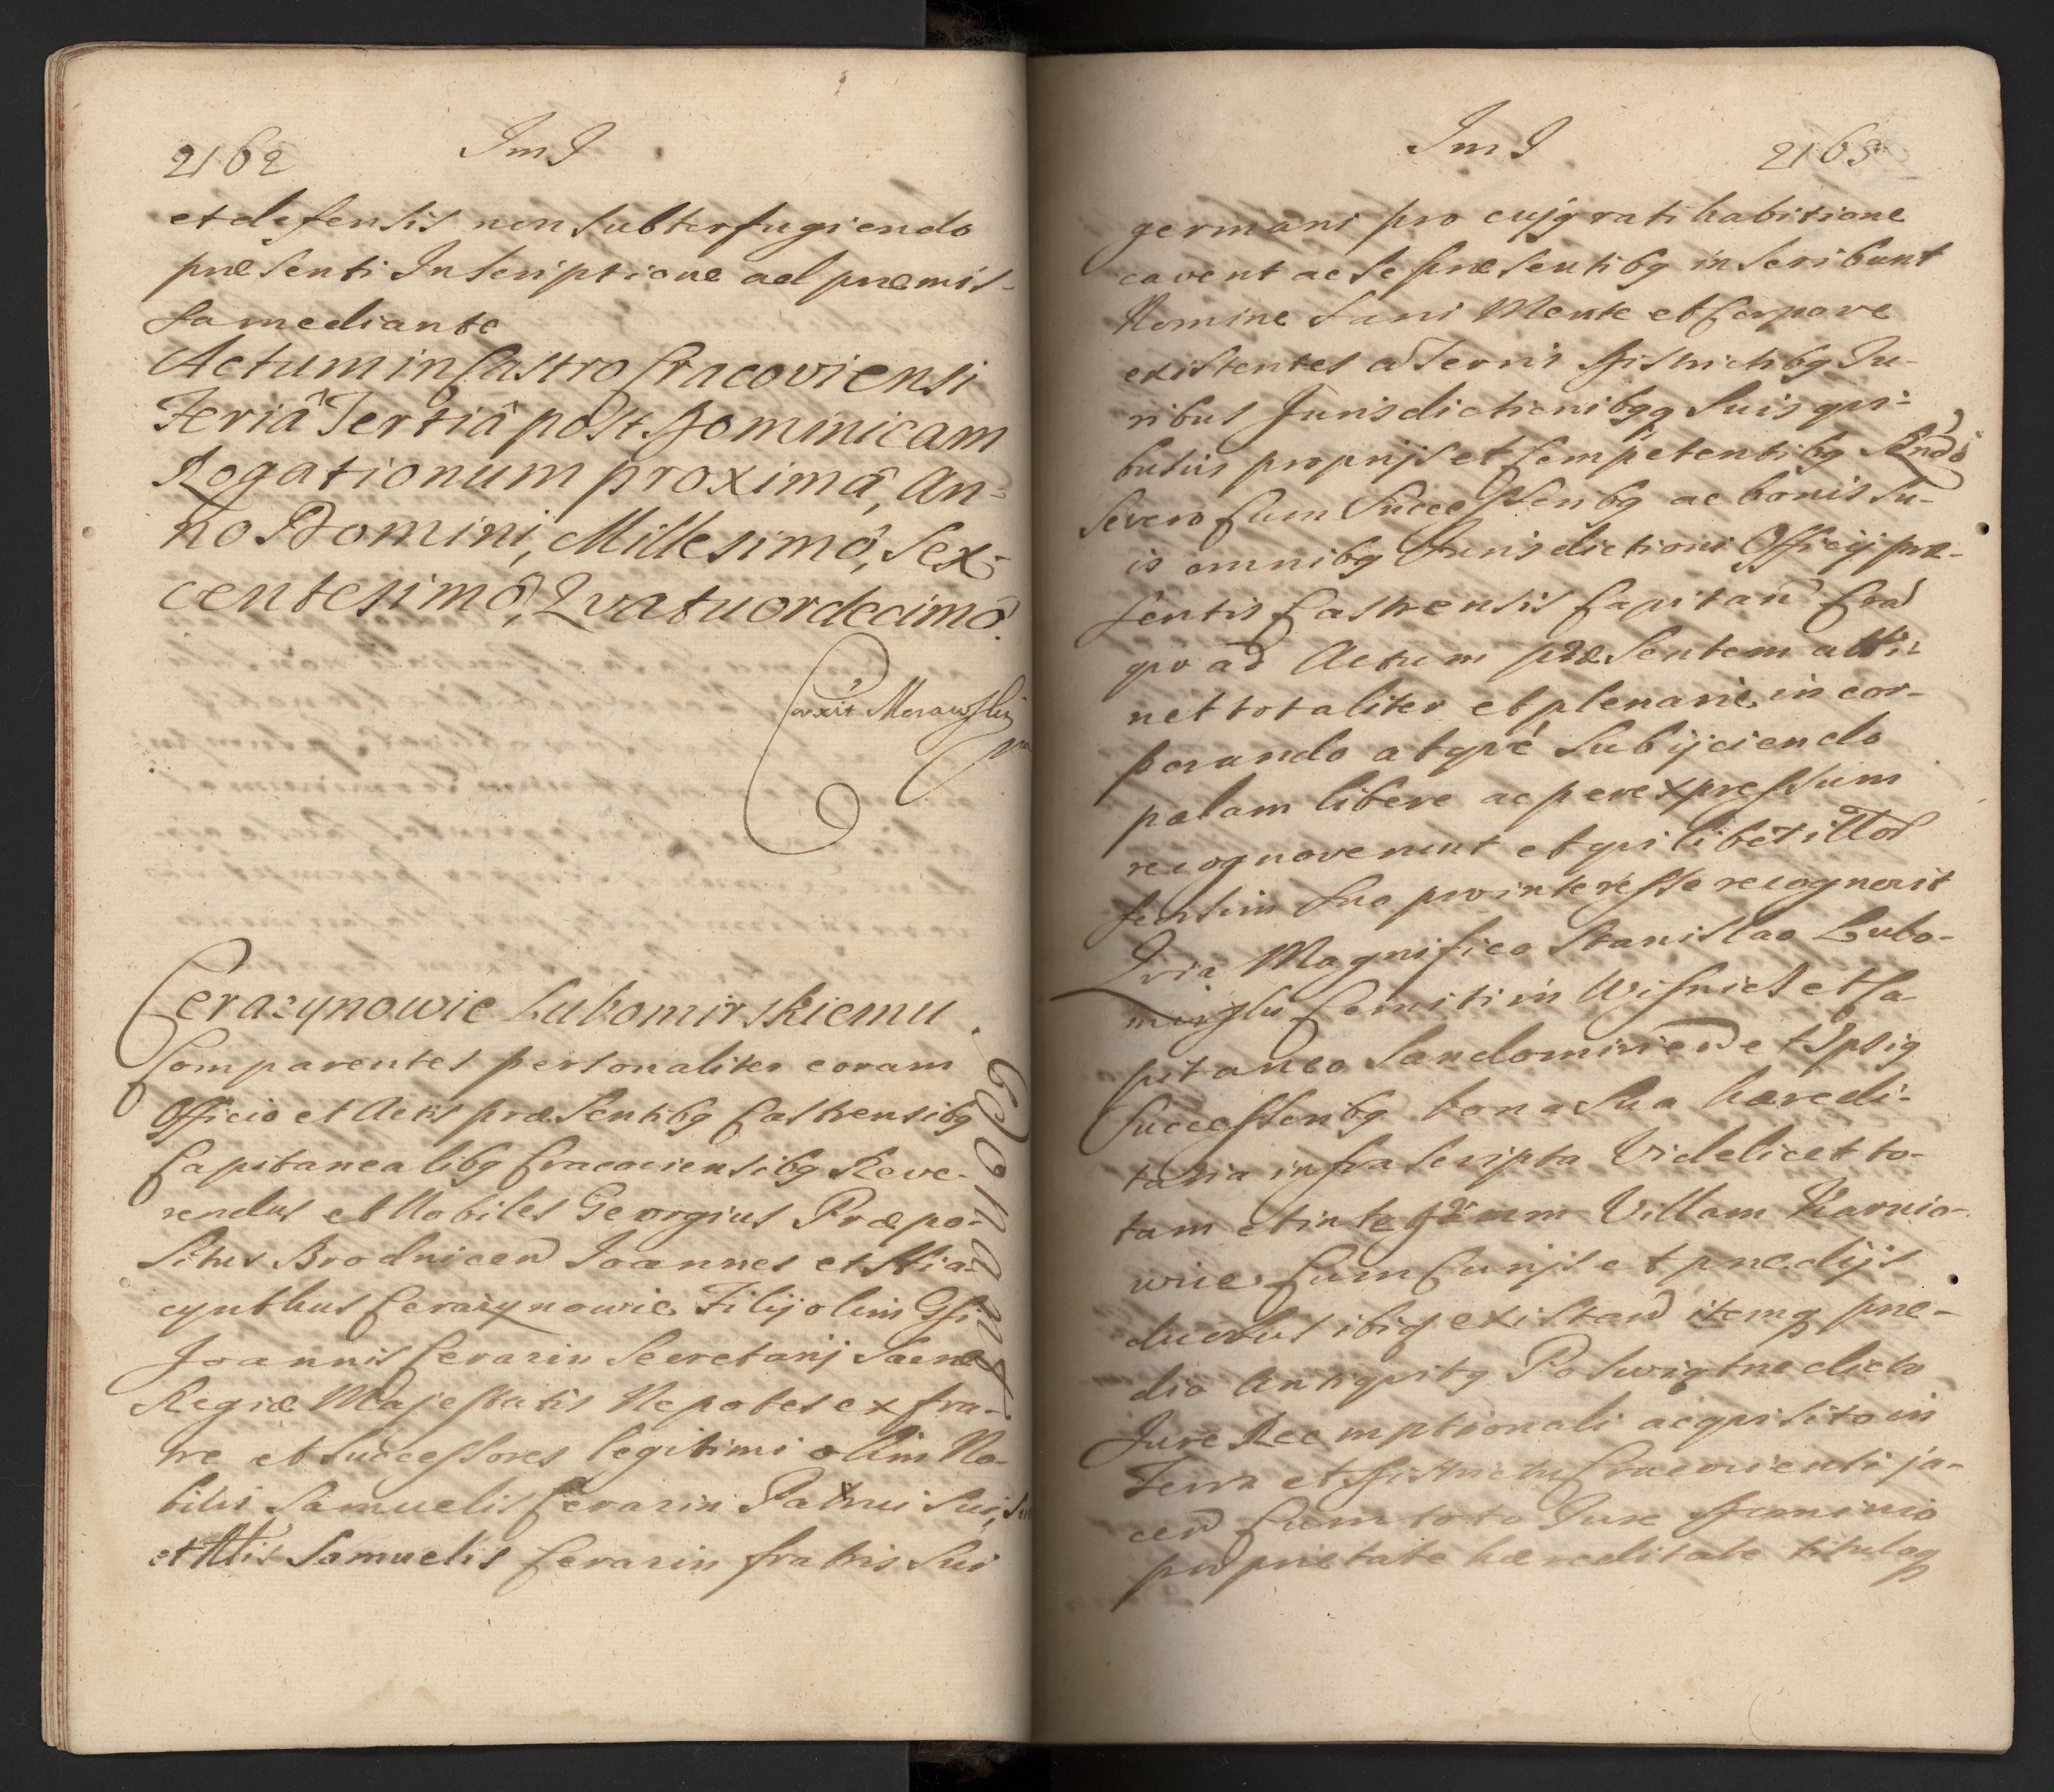 2162
ImI
et defensis non subterfugiendo
præsenti Inscriptione ad præmis-
sa mediante
Actum in Castro Cracoviensi
Feriâ Tertiâ post Dominicam
Rogationum proximâ, An-
no Domini, Millesimô, Sex-
centesimô, Qvatuordecimô.
Corxit Morawski
mp
Cerazynowie Lubomirskiemu
Comparentes personaliter coram
Officio et Actis præsentibq Castrensibq
Capitanealibq Cracoviensibq Reve-
rendus et Nobiles Georgius Præpo-
situs Brodnicen Joannes et Hia-
cynthus Cerazynowie Filij olim Gsi
Joannis Cerazin Secretarij Sacræ
Regiæ Majestatis Nepotes ex fra-
tre et Successores legitimi olim No-
bilis Samuelis Cerazin Patrui sui,
et Attis Samuelis Cerazin fratris sui
ImI
2163
germani pro cujq ratihabitione
cavent ac se præsentibq inscribunt
Nomine Sani Mente et Corpore
existentes a Terris Districtibq Ju-
ribus Jurisdictionibqq suis qvi-
busvis proprijs et Competentibq
se vero Cum Successoribq ac bonis su-
is omnibq Jurisdictioni Officij præ-
sentis Castrensis Capitan Crac
qvo ad Actum præsentem atti-
net totaliter et plenarie, incor-
porando atqve subijciendo
palam libere ac per expressum
recognoverunt et qvilibet illor
seorsim suo pro interesse recognovit
Qvia Magnifico Stanislao Lubo-
mirsky Comiti in Wisnicz et Ca-
pitaneo Sandomirien et Ipsiq
Successoribq bona sua hæredi-
taria infrascripta Videlicet to-
tam et integram Villam Karnio-
wice Cum Curijs et prædijs
duobus ibiq existen itemq præ-
dio Antiqvitq Poswiątne dicto
Jure Reemptionali acqvisito in
Terra et Districtu Cracoviensi ja-
cen Cum toto Jure Dominio
proprietate hæreditate tituloq